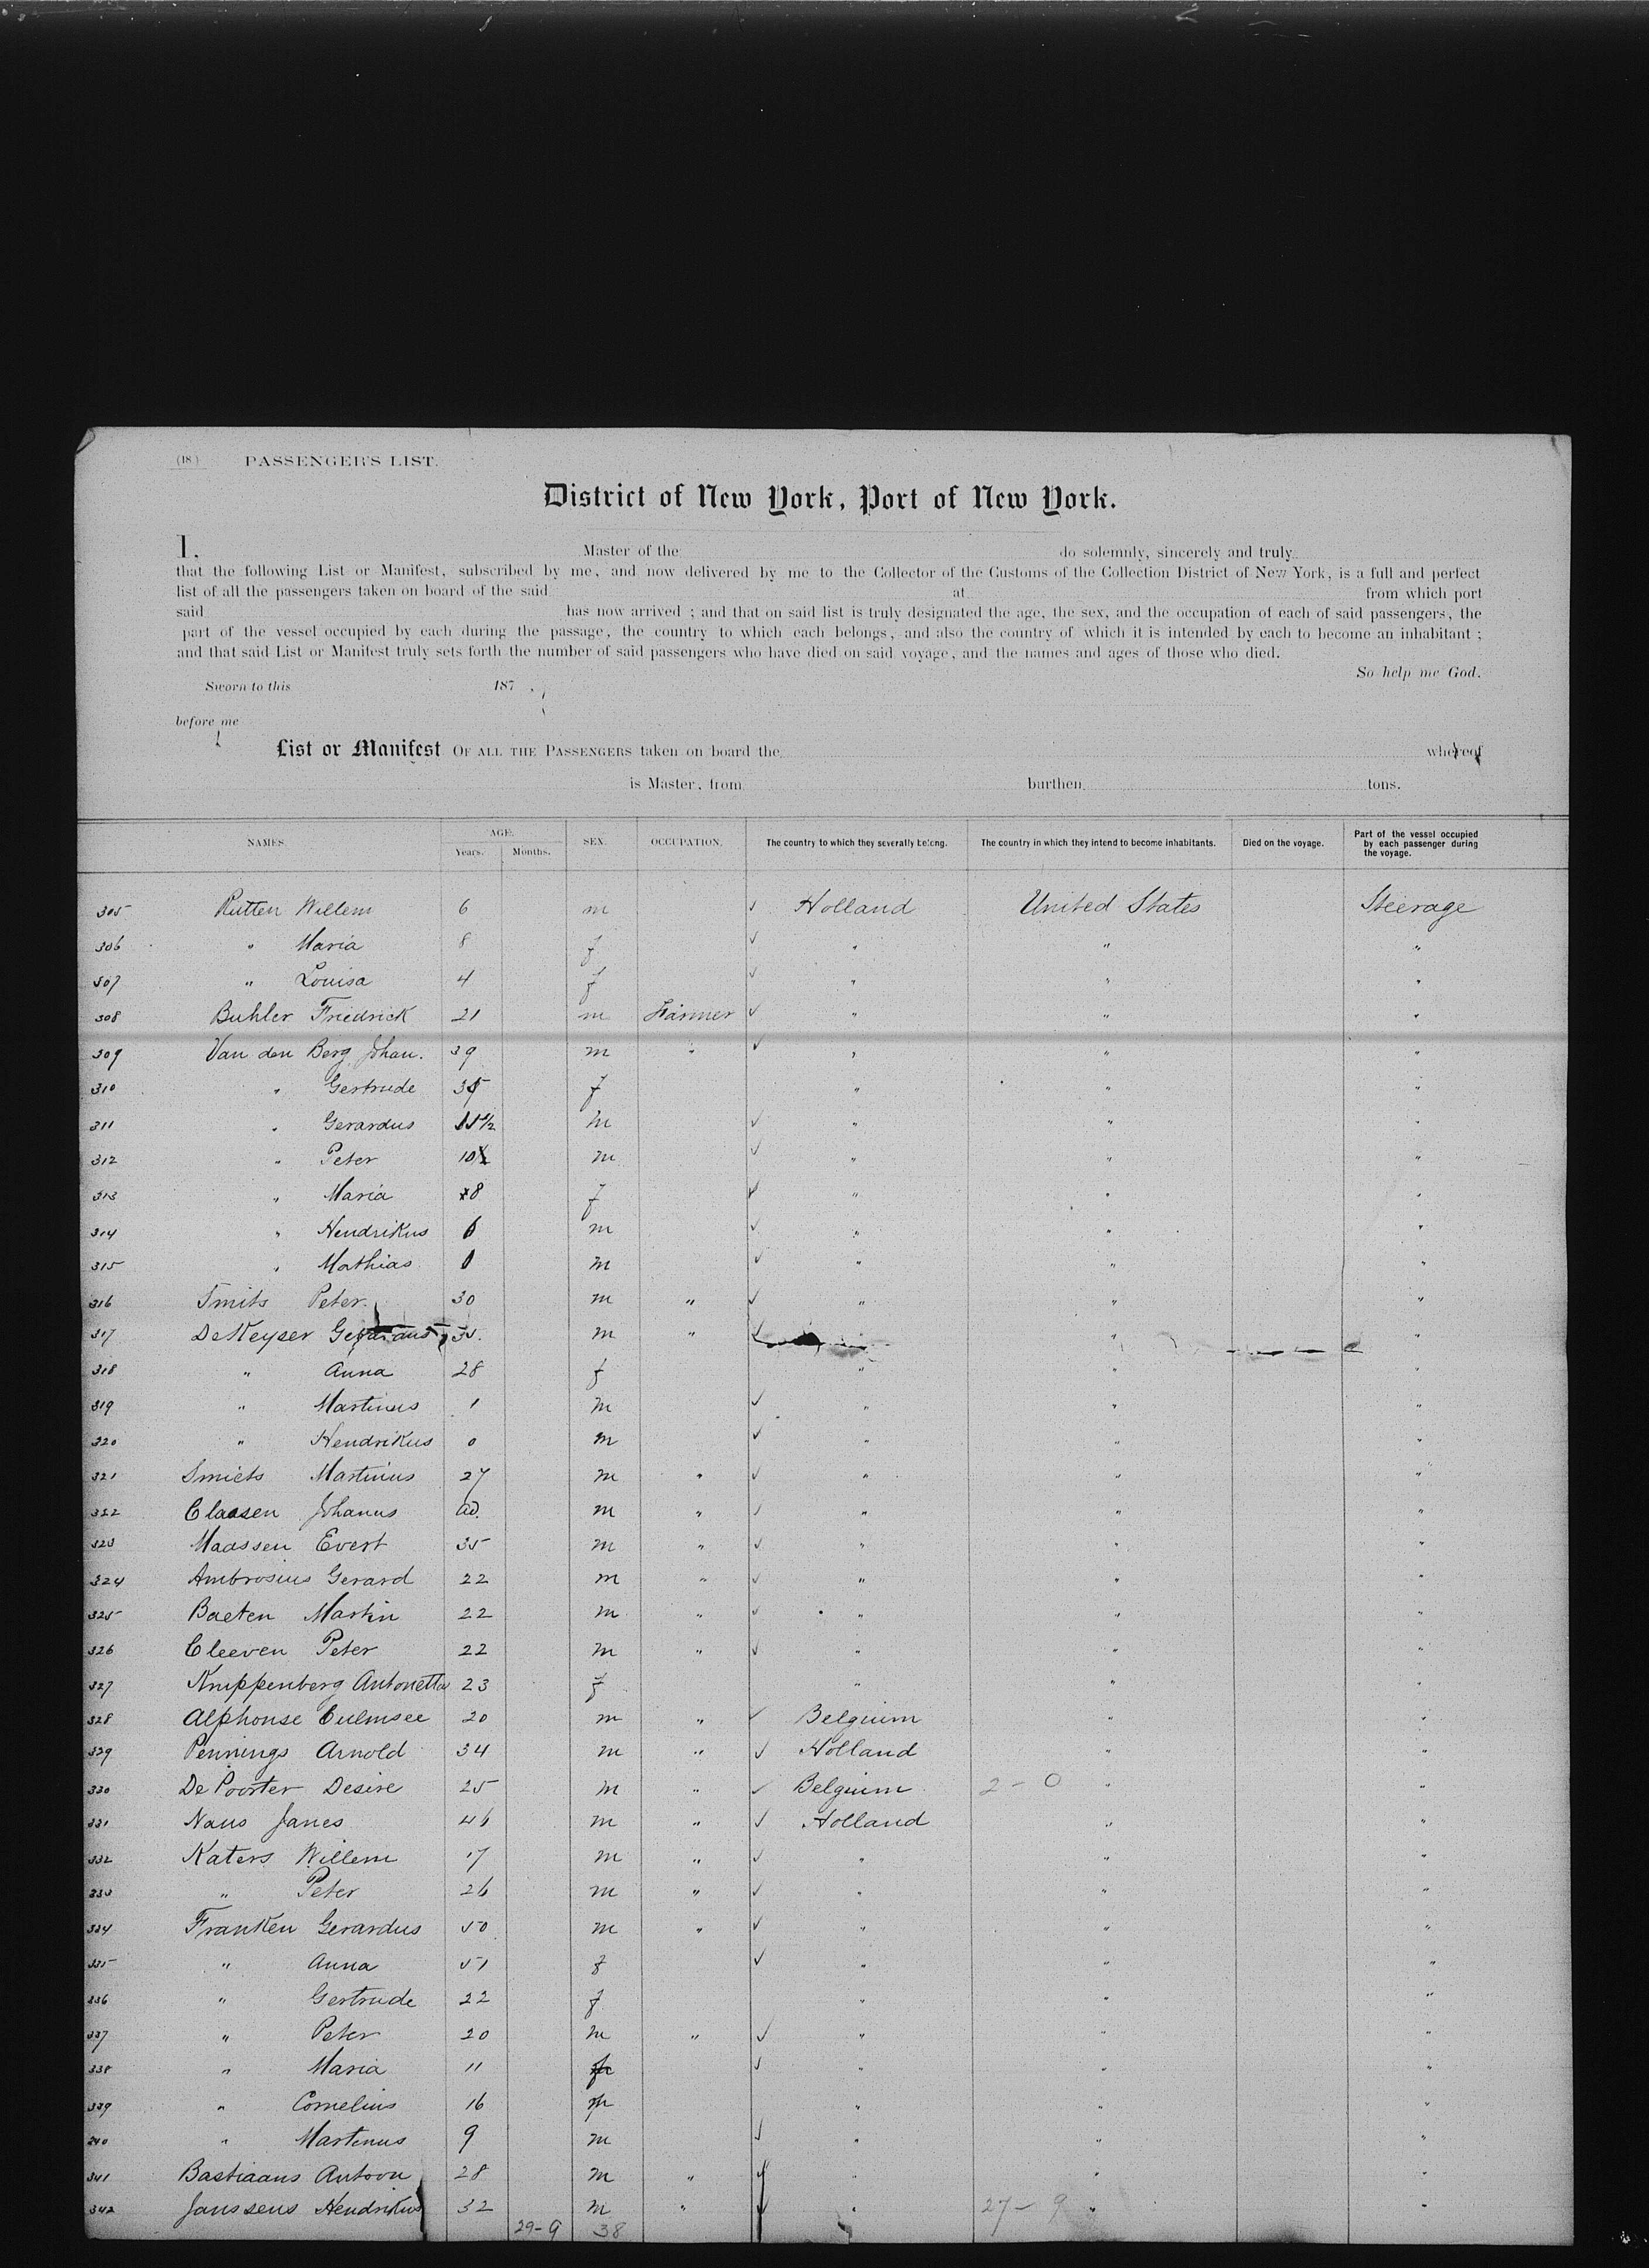 (18) PASSENGER'S LIST.
District of New York, Port of New York.
I, Master of the do solemnly, sincerely and truly
that the following List or Manifest, subscribed by me, and now delivered by me to the Collector of the Customs of the Collection District of New York, is a full and perfect
list of all the passengers taken on board of the said at from which port
said has now arrived ; and that on said list is truly designated the age, the sex, and the occupation of each of said passengers, the
part of the vessel occupied by each during the passage, the country to which each belongs, and also the country of which it is intended by each to become an inhabitant ;
and that said List or Manifest truly sets forth the number of said passengers who have died on said voyage, and the names and ages of those who died.
So help me God.
Sworn to this 187
before me
List or Manifest OF ALL THE PASSENGERS taken on board the whereof
is Master, from burthen tons.
NAMES. AGE. Years. Months. SEX. OCCUPATION. The country to which they severally belong. The country in which they intend to become inhabitants. Died on the voyage. Part of the vessel occupied by each passenger during the voyage.
305 Rutten Willem 6 m ✓ Holland United States Steerage
306 " Maria 8 f ✓ " " "
307 " Louisa 4 f ✓ " " "
308 Buhler Friedrick 21 m Farmer ✓ " " "
309 Van den Berg Johan. 39 m " ✓ " " "
310 " Gertrude f " " "
311 " Gerardus m ✓ " " "
312 " Peter 10 m ✓ " " "
313 " Maria 8 f ✓ " " "
314 " Hendrikus 6 m ✓ " " "
315 " Mathias m ✓ " " "
316 Smits Peter 30 m " ✓ " " "
317 DeKeyser m " ✓ " " "
318 " Anna 28 f " " "
319 " Martinus 1 m ✓ " " "
320 " Hendrikus 0 m ✓ " " "
321 Smiets Martinus 27 m " ✓ " " "
322 Claasen Johanus ad. m " ✓ " " "
323 Maassen Evert 35 m " ✓ " " "
324 Ambrosius Gerard 22 m " ✓ " " "
325 Baeten Martin 22 m " ✓ " " "
326 Cleeven Peter 22 m " ✓ " " "
327 Knippenberg Antonetta 23 f " " "
328 Alphonse Culmsee 20 m " ✓ Belgium " "
329 Pennings Arnold 34 m " ✓ Holland " "
330 De Poorter Desire 25 m " ✓ Belgium 2 - 0 " "
331 Naus Janes 46 m " ✓ Holland " "
332 Katers Willem 17 m " ✓ " " "
333 " Peter 26 m " ✓ " " "
334 Franken Gerardus 50 m " ✓ " " "
335 " Anna 51 f ✓ " " "
336 " Gertrude 22 f " " "
337 " Peter 20 m " ✓ " " "
338 " Maria 11 f ✓ " " "
339 " Cornelius 16 m " " "
340 " Martinus 9 m ✓ " " "
341 Bastiaans Antoon 28 m " ✓ " " "
342 Janssens Hendrikus 32 m " ✓ " 27 - 9 " "
29-9 38